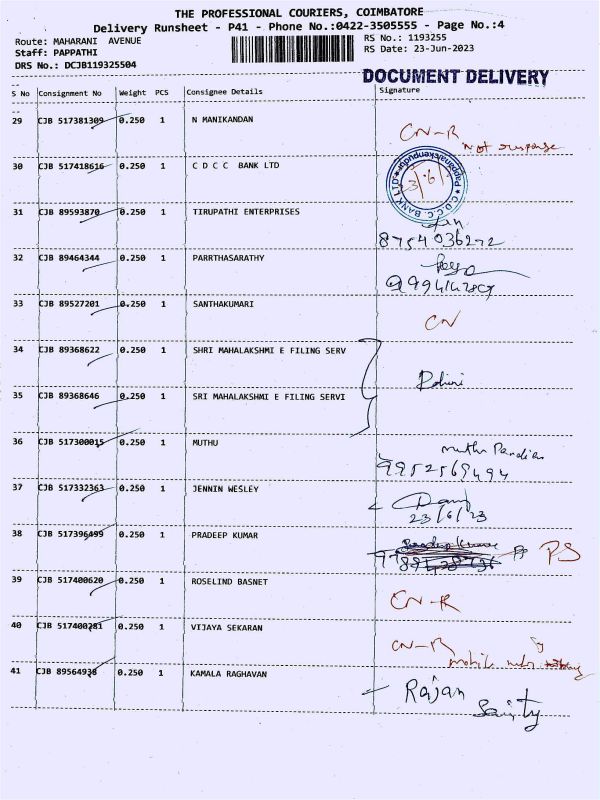 THE PROFESSIONAL COURIERS, COIMBATORE
Delivery Runsheet - P41 - Phone No.:0422-3505555 - Page No.:4
Route: MAHARANI AVENUE
Staff: PAPPATHI
DRS No.: DCJB119325504
RS No.: 1193255
RS Date: 23-Jun-2023
DOCUMENT DELIVERY
S No Consignment No Weight PCS Consignee Details Signature
29 CJB 517381309 0.250 1 N MANIKANDAN CN-R
not response
30 CJB 517418616 0.250 1 C D C C BANK LTD
31 CJB 89593870 0.250 1 TIRUPATHI ENTERPRISES
8754036272
32 CJB 89464344 0.250 1 PARRTHASARATHY
33 CJB 89527201 0.250 1 SANTHAKUMARI CN
34 CJB 89368622 0.250 1 SHRI MAHALAKSHMI E FILING SERV
35 CJB 89368646 0.250 1 SRI MAHALAKSHMI E FILING SERVI
36 CJB 517300015 0.250 1 MUTHU Muthu Pandian
9952569494
37 CJB 517332363 0.250 1 JENNIN WESLEY
23/6/23
38 CJB 517396499 0.250 1 PRADEEP KUMAR PS
39 CJB 517400620 0.250 1 ROSELIND BASNET CN-R
40 CJB 517400281 0.250 1 VIJAYA SEKARAN CN-R
41 CJB 89564938 0.250 1 KAMALA RAGHAVAN Rajan